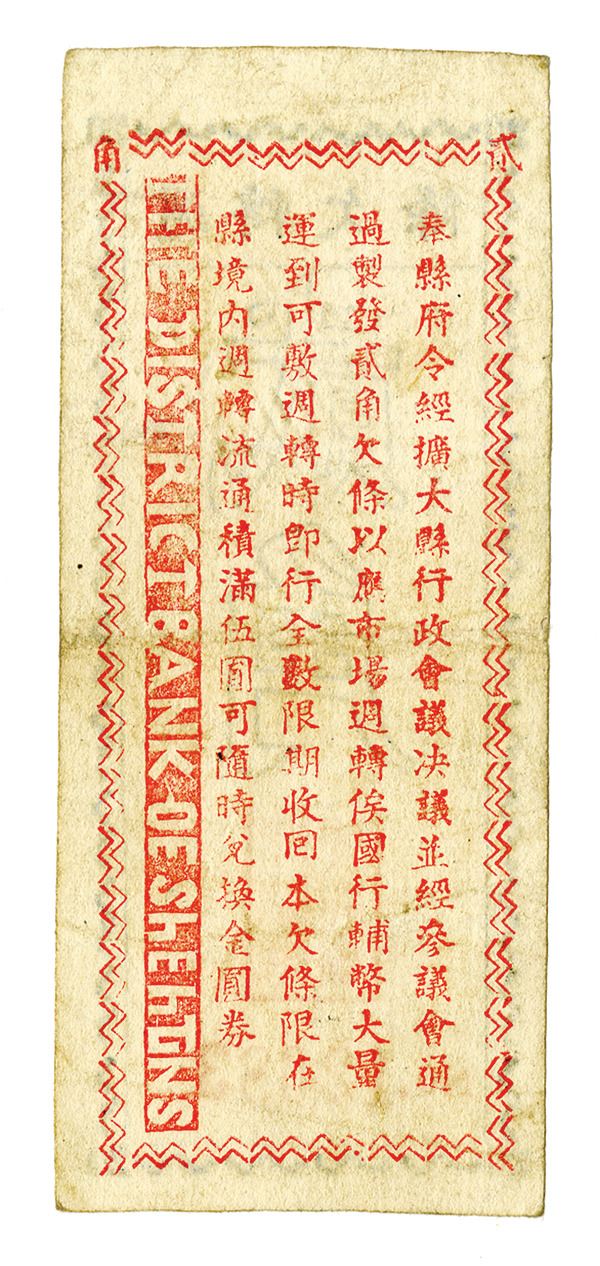 貳
角
奉縣府令經擴大縣行政會議决議並經參議會通
過製發貳角欠條以應市場週轉俟國行輔幣大量
運到可敷週轉時即行全數限期收回本欠條限在
縣境內週轉流通積滿伍圓可隨時兌換金圓券
THE DISTRICT BANK OF